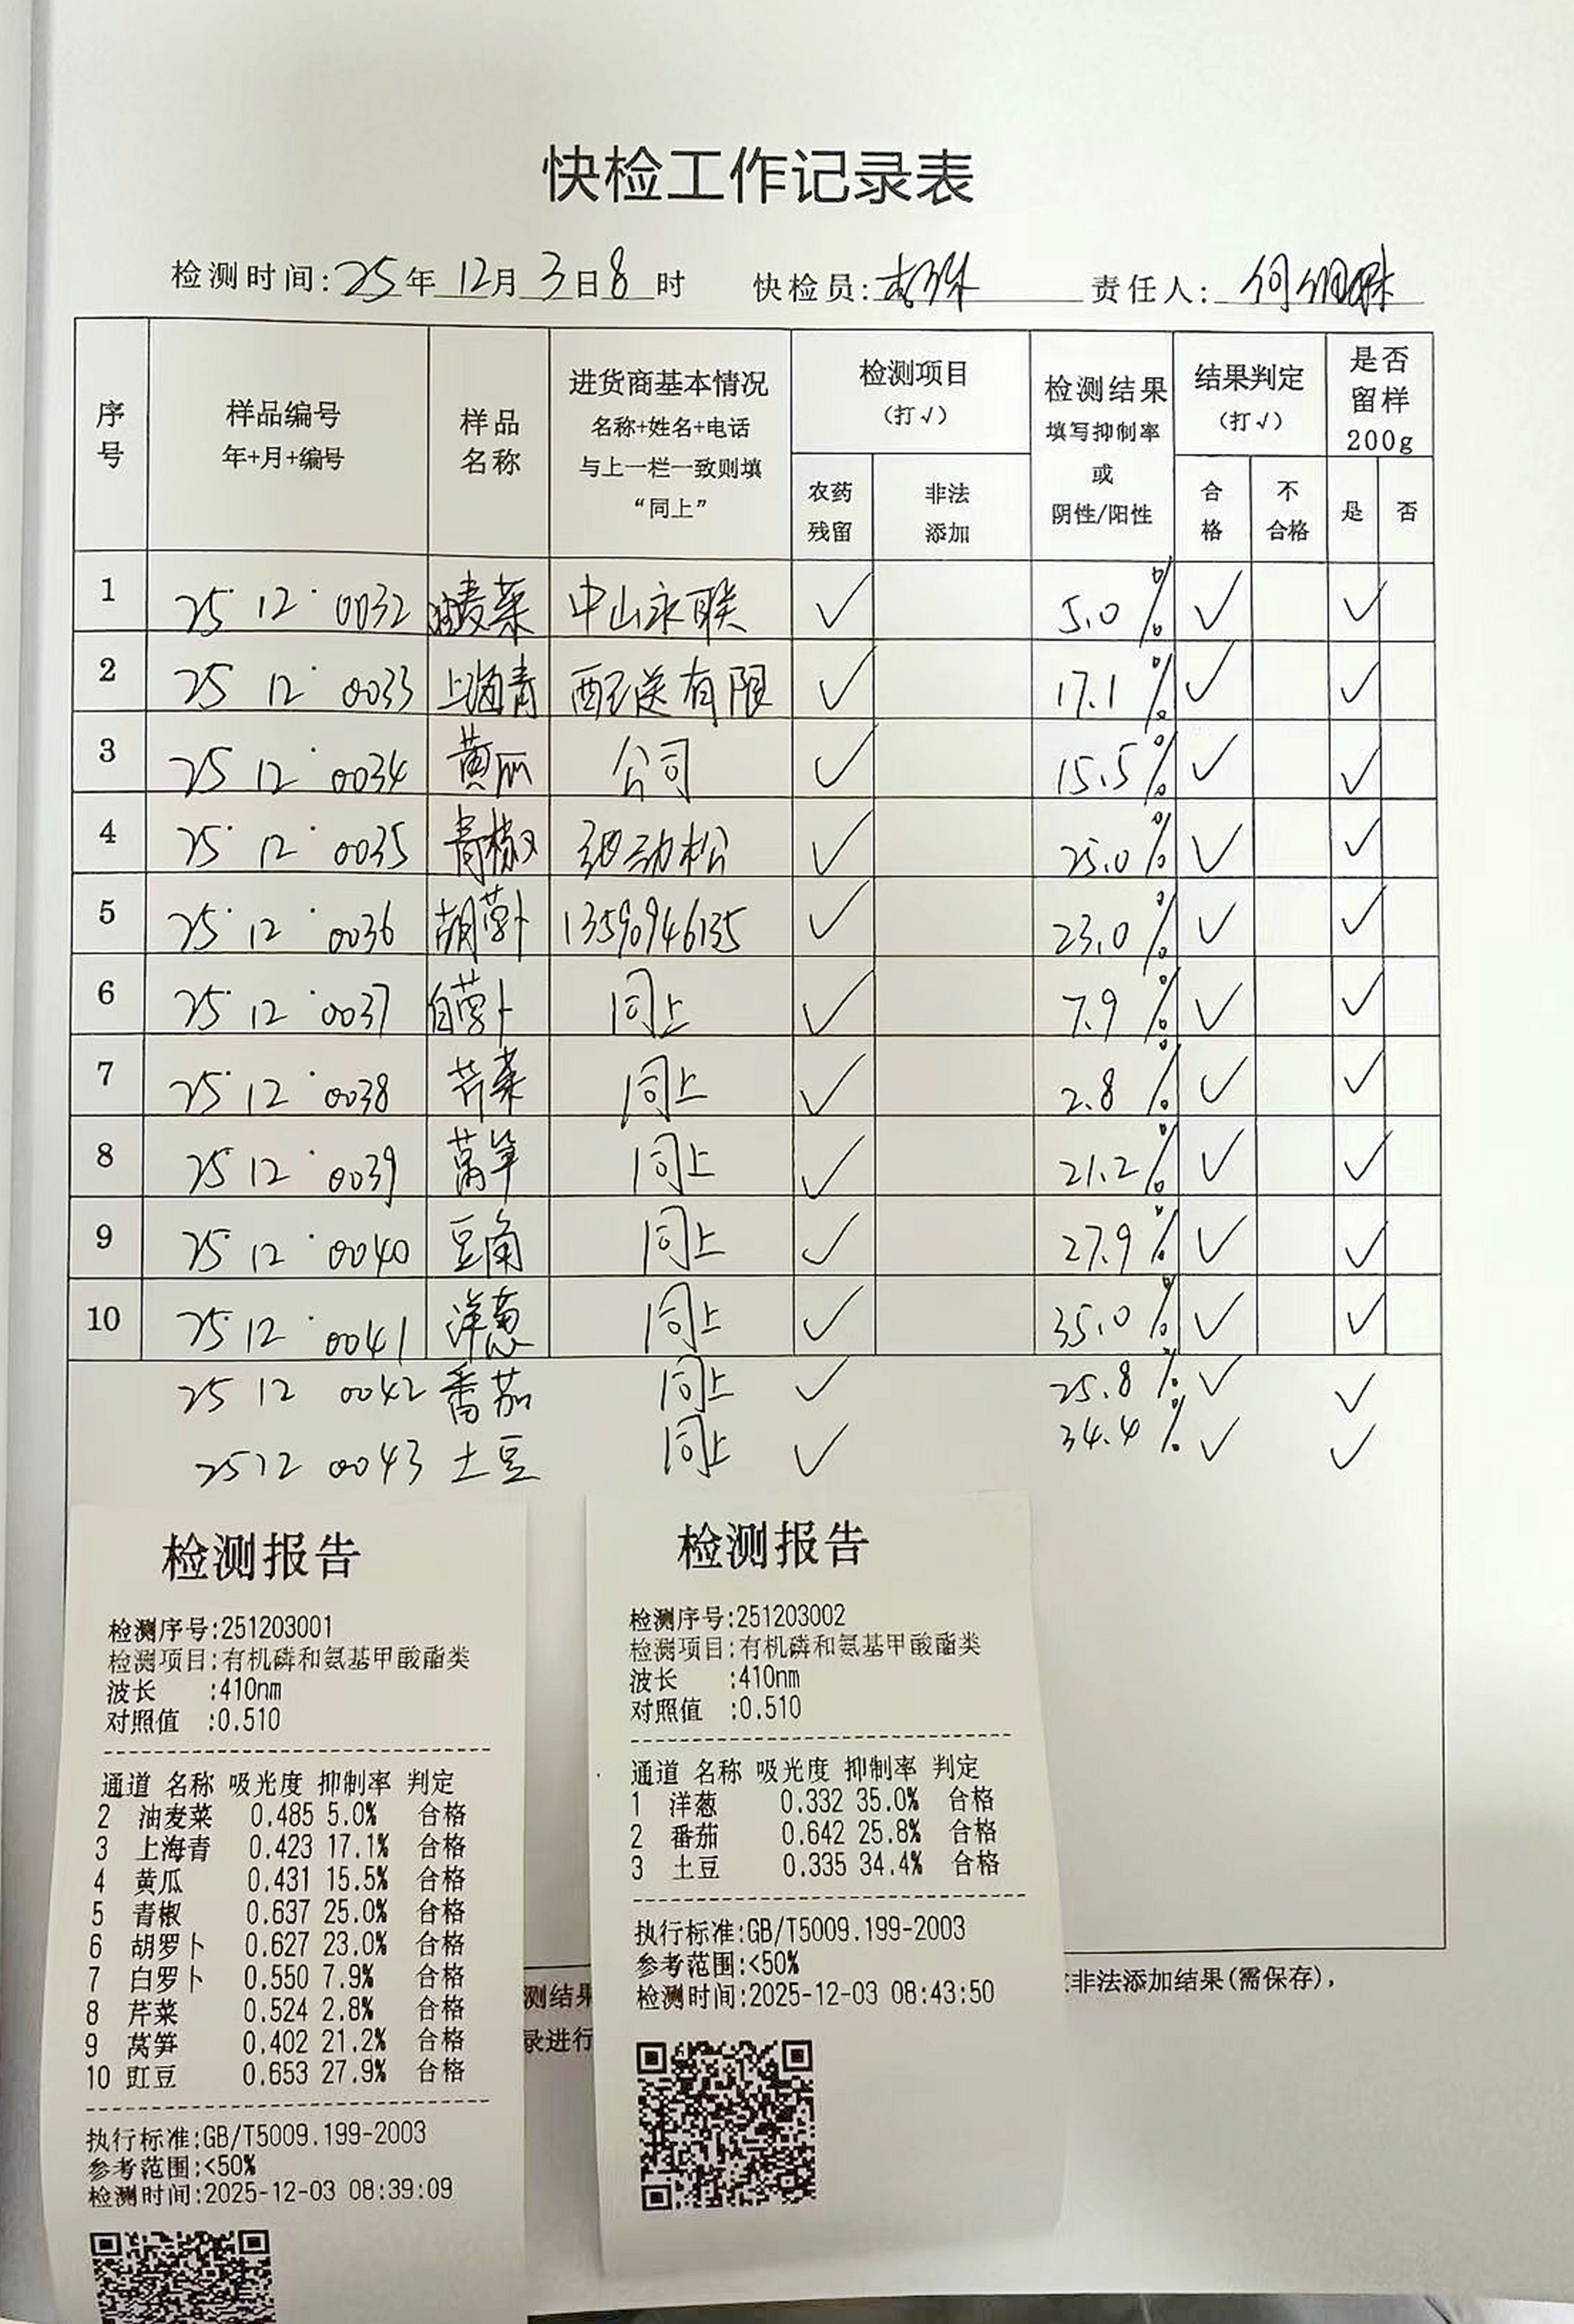 快检工作记录表
检测时间:25年12月3日8时 快检员: 责任人:何
序号 样品编号 年+月+编号 样品名称 进货商基本情况 名称+姓名+电话 与上一栏一致则填“同上” 检测项目（打√） 农药残留 非法添加 检测结果 填写抑制率 或 阴性/阳性 结果判定（打√） 合格 不合格 是否留样200g 是 否
1 25 12 0032 油麦菜 中山永联 ✓ 5.0% ✓ ✓
2 25 12 0033 上海青 配送有限 ✓ 17.1% ✓ ✓
3 25 12 0034 黄瓜 公司 ✓ 15.5% ✓ ✓
4 25 12 0035 青椒 劲松 ✓ 25.0% ✓ ✓
5 25 12 0036 胡萝卜 13590946135 ✓ 23.0% ✓ ✓
6 25 12 0037 白萝卜 同上 ✓ 7.9% ✓ ✓
7 25 12 0038 芹菜 同上 ✓ 2.8% ✓ ✓
8 25 12 0039 莴笋 同上 ✓ 21.2% ✓ ✓
9 25 12 0040 豆角 同上 ✓ 27.9% ✓ ✓
10 25 12 0041 洋葱 同上 ✓ 35.0% ✓ ✓
25 12 0042 番茄 同上 ✓ 25.8% ✓ ✓
25 12 0043 土豆 同上 ✓ 34.4% ✓ ✓
检测报告
检测序号:251203001
检测项目:有机磷和氨基甲酸酯类
波长 :410nm
对照值 :0.510
通道 名称 吸光度 抑制率 判定
2 油麦菜 0.485 5.0% 合格
3 上海青 0.423 17.1% 合格
4 黄瓜 0.431 15.5% 合格
5 青椒 0.637 25.0% 合格
6 胡罗卜 0.627 23.0% 合格
7 白罗卜 0.550 7.9% 合格
8 芹菜 0.524 2.8% 合格
9 莴笋 0.402 21.2% 合格
10 豇豆 0.653 27.9% 合格
执行标准:GB/T5009.199-2003
参考范围:<50%
检测时间:2025-12-03 08:39:09
检测报告
检测序号:251203002
检测项目:有机磷和氨基甲酸酯类
波长 :410nm
对照值 :0.510
通道 名称 吸光度 抑制率 判定
1 洋葱 0.332 35.0% 合格
2 番茄 0.642 25.8% 合格
3 土豆 0.335 34.4% 合格
执行标准:GB/T5009.199-2003
参考范围:<50%
检测时间:2025-12-03 08:43:50
测结果 非法添加结果(需保存),
录进行